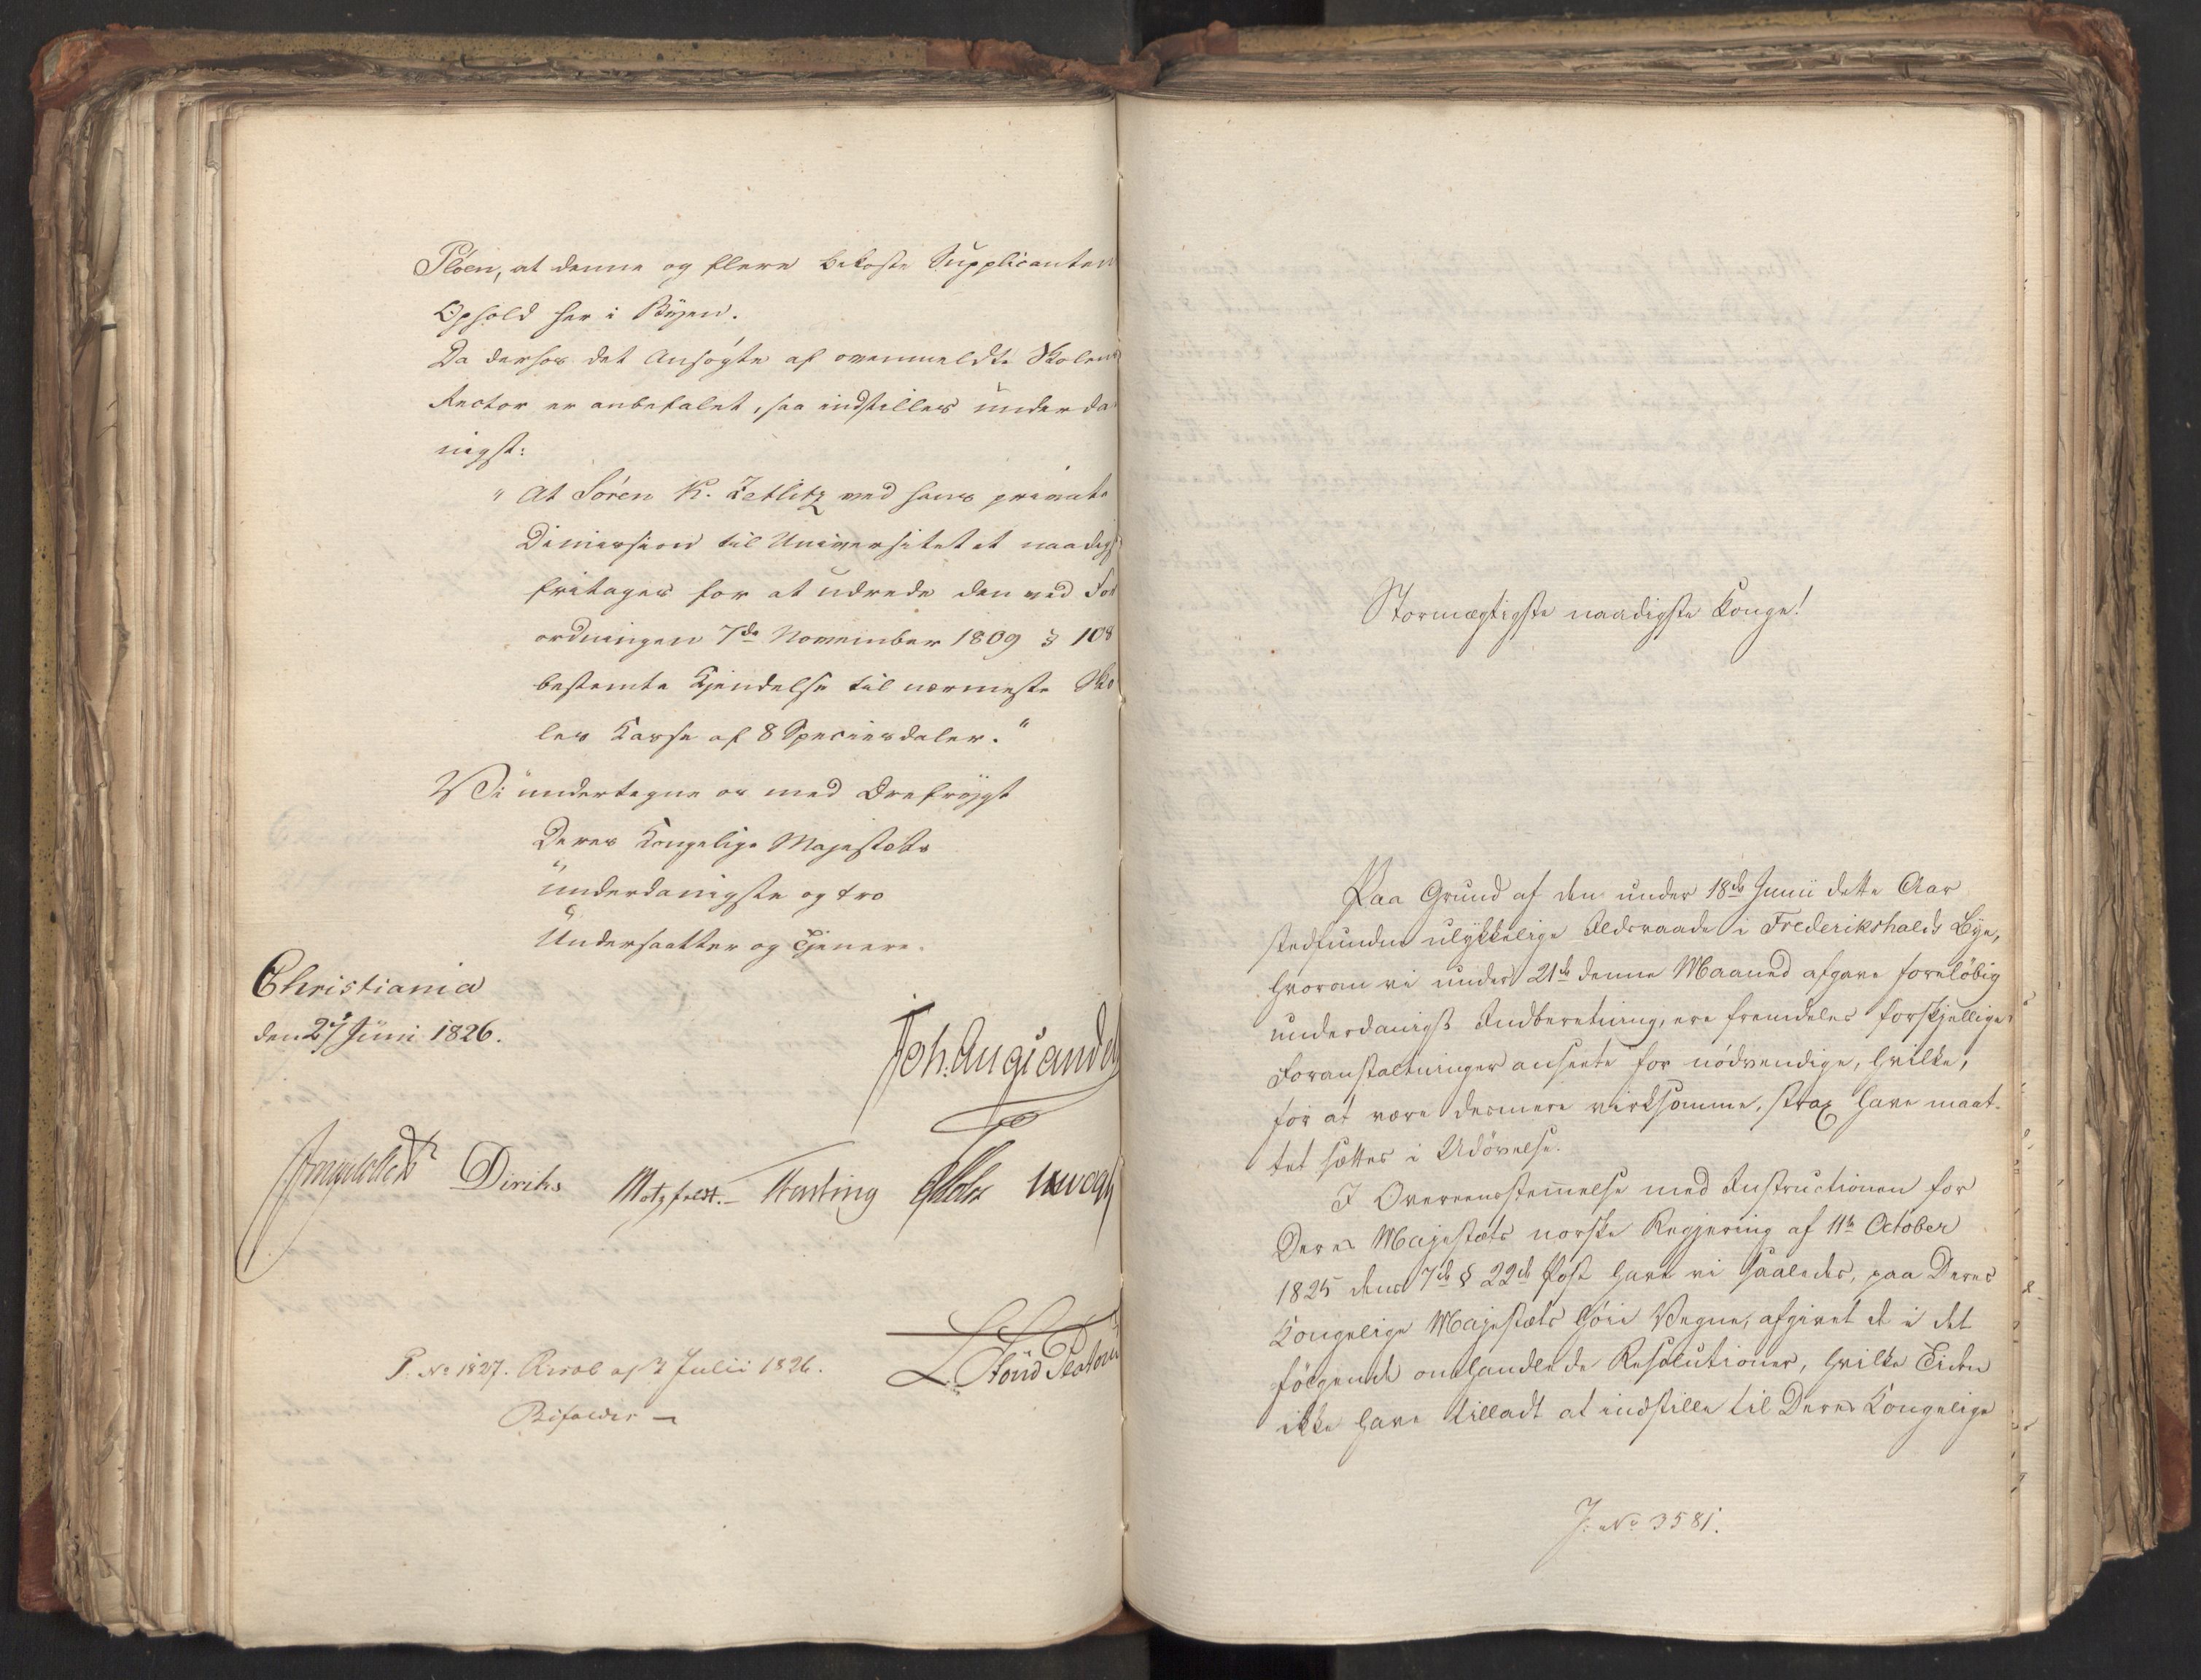 Ploen, at denne og flere bekoste Supplicanten
Ophold her i Byen.
Da derhos det Ansøgte af ovenmeldte Skolens
Rector er anbefalet, saa indstilles underda
nigst:
"At Sören K. Zetlitz ved hans private
Dimission til Universitetet naadigst
fritages for at udrede den ved For
ordningen 7de November 1809 § 108
bestemte Kjendelse til nærmeste Sko
les Kasse af 8 Speciesdaler."
Vi undertegne os med Ærefrygt
Deres Kongelige Majestæts
underdanigste og tro
Undersaatter og Tjenere.
Christiania
den 27 Juni 1826.
Joh. Aug Sandels
Diriks Motzfeldt. Hasting
L. Stoud Platou
P. No 1827. Resol af 3 Julii 1826.
Bifaldes
Stormægtigste naadigste Konge!
Paa Grund af den under 18de Junii dette Aar
stedfundne ulykkelige Ildsvaade i Frederikshalds Bye,
hvorom vi under 21de denne Maaned afgave foreløbig
underdanigst Indberetning, ere fremdeles forskjellige
Foranstaltninger ansete for nødvendige, hvilke,
for at være desmere virksomme, strax have maat-
tet sættes i Udøvelse.
I Overeensstemmelse med Instructionen for
Deres Majestæts norske Regjering af 11te October
1825 dens 7de § 22de Post have vi saaledes, paa Deres
Kongelige Majestæts høie Vegne, afgivet de i det
følgende omhandlede Resolutioner, hvilke Tiden
ikke have tilladt at indstille til Deres Kongelige
J. No 3581.